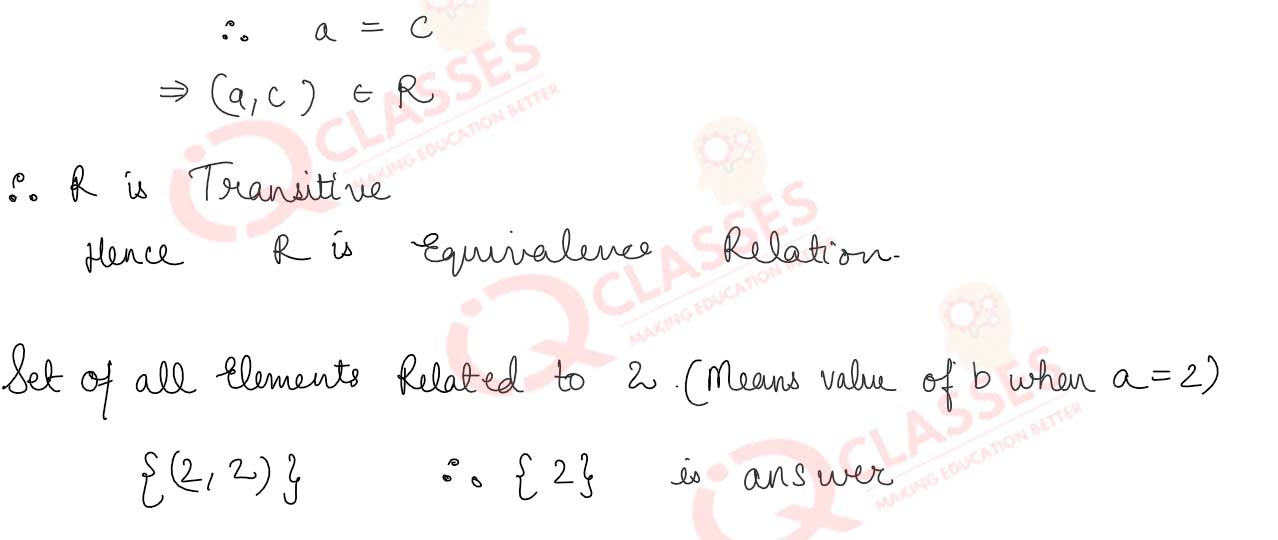 ∴ a = c
⇒ (a, c) ∈ R
∴ R is Transitive
Hence R is Equivalence Relation.
Set of all Elements Related to 2. (Means value of b when a = 2)
{(2, 2)} ∴ {2} is answer
iQ CLASSES
MAKING EDUCATION BETTER
iQ CLASSES
MAKING EDUCATION BETTER
iQ CLASSES
MAKING EDUCATION BETTER